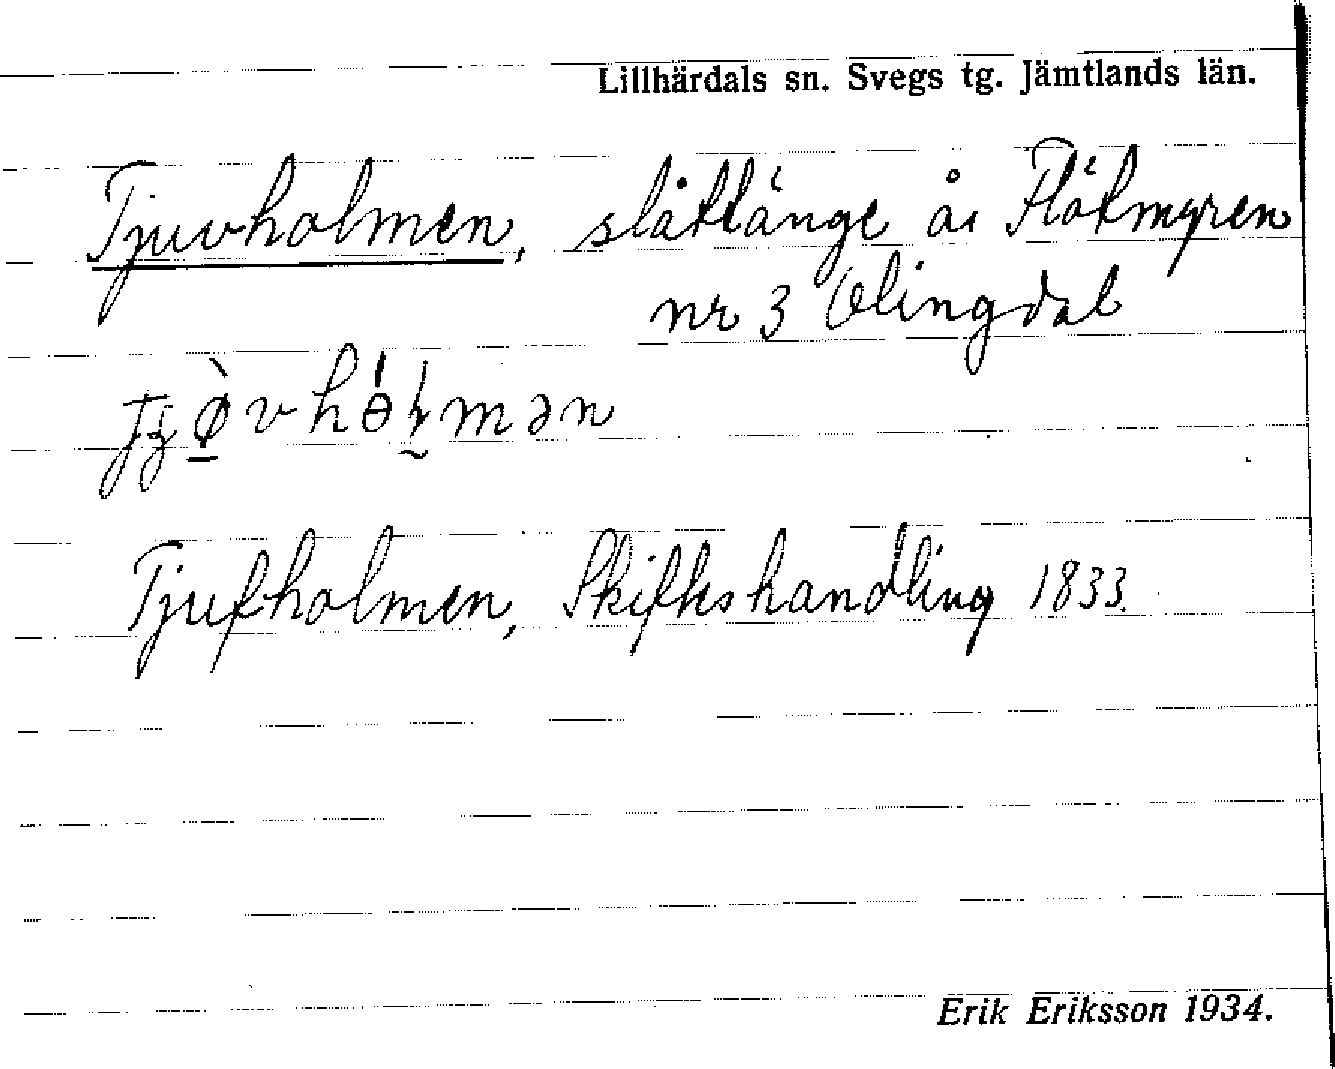 Lillhärdals sn. Svegs tg. Jämtlands län.
Tjuvholmen, slåttänge å Flötmyren
nr 3 Olingdal
Tjufholmen, Skifteshandling 1833.
Erik Eriksson 1934.